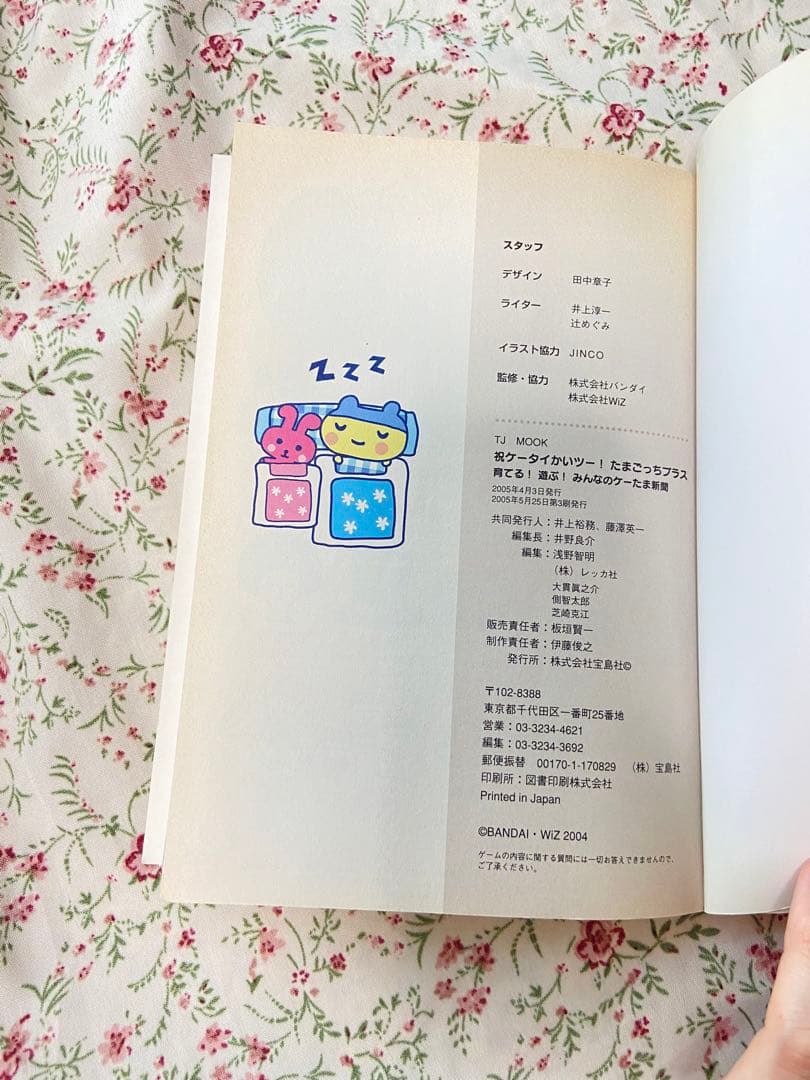 Z Z Z
スタッフ
デザイン 田中章子
ライター 井上淳一
辻めぐみ
イラスト協力 JINCO
監修・協力 株式会社バンダイ
株式会社WiZ
TJ MOOK
祝ケータイかいツー! たまごっちプラス
育てる! 遊ぶ! みんなのケーたま新聞
2005年4月3日発行
2005年5月25日第3刷発行
共同発行人:井上裕務、藤澤英一
編集長:井野良介
編集:浅野智明
(株)レッカ社
大貫眞之介
側智太郎
芝崎克江
販売責任者:板垣賢一
制作責任者:伊藤俊之
発行所:株式会社宝島社©
〒102-8388
東京都千代田区一番町25番地
営業:03-3234-4621
編集:03-3234-3692
郵便振替 00170-1-170829 (株)宝島社
印刷所:図書印刷株式会社
Printed in Japan
©BANDAI・WiZ 2004
ゲームの内容に関する質問には一切お答えできませんので、
ご了承ください。